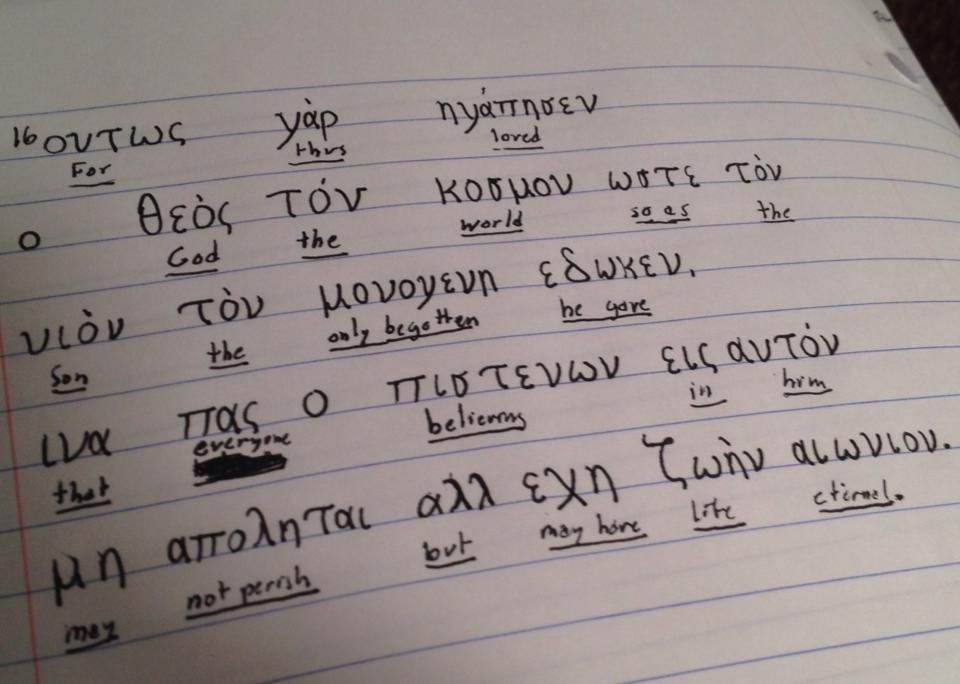 16 ουτως γὰρ ηγάπησεν
For thus loved
ο θεὸς τόν κοσμον ωστε τὸν
God the world so as the
υιὸν τὸν μονογενη εδωκεν,
Son the only begotten he gave
ινα πας ο πιστευων εις αυτόν
that everyone believing in him
μη αποληται αλλ εχη ζωὴν αιωνιον.
may not perish but may have life eternal.